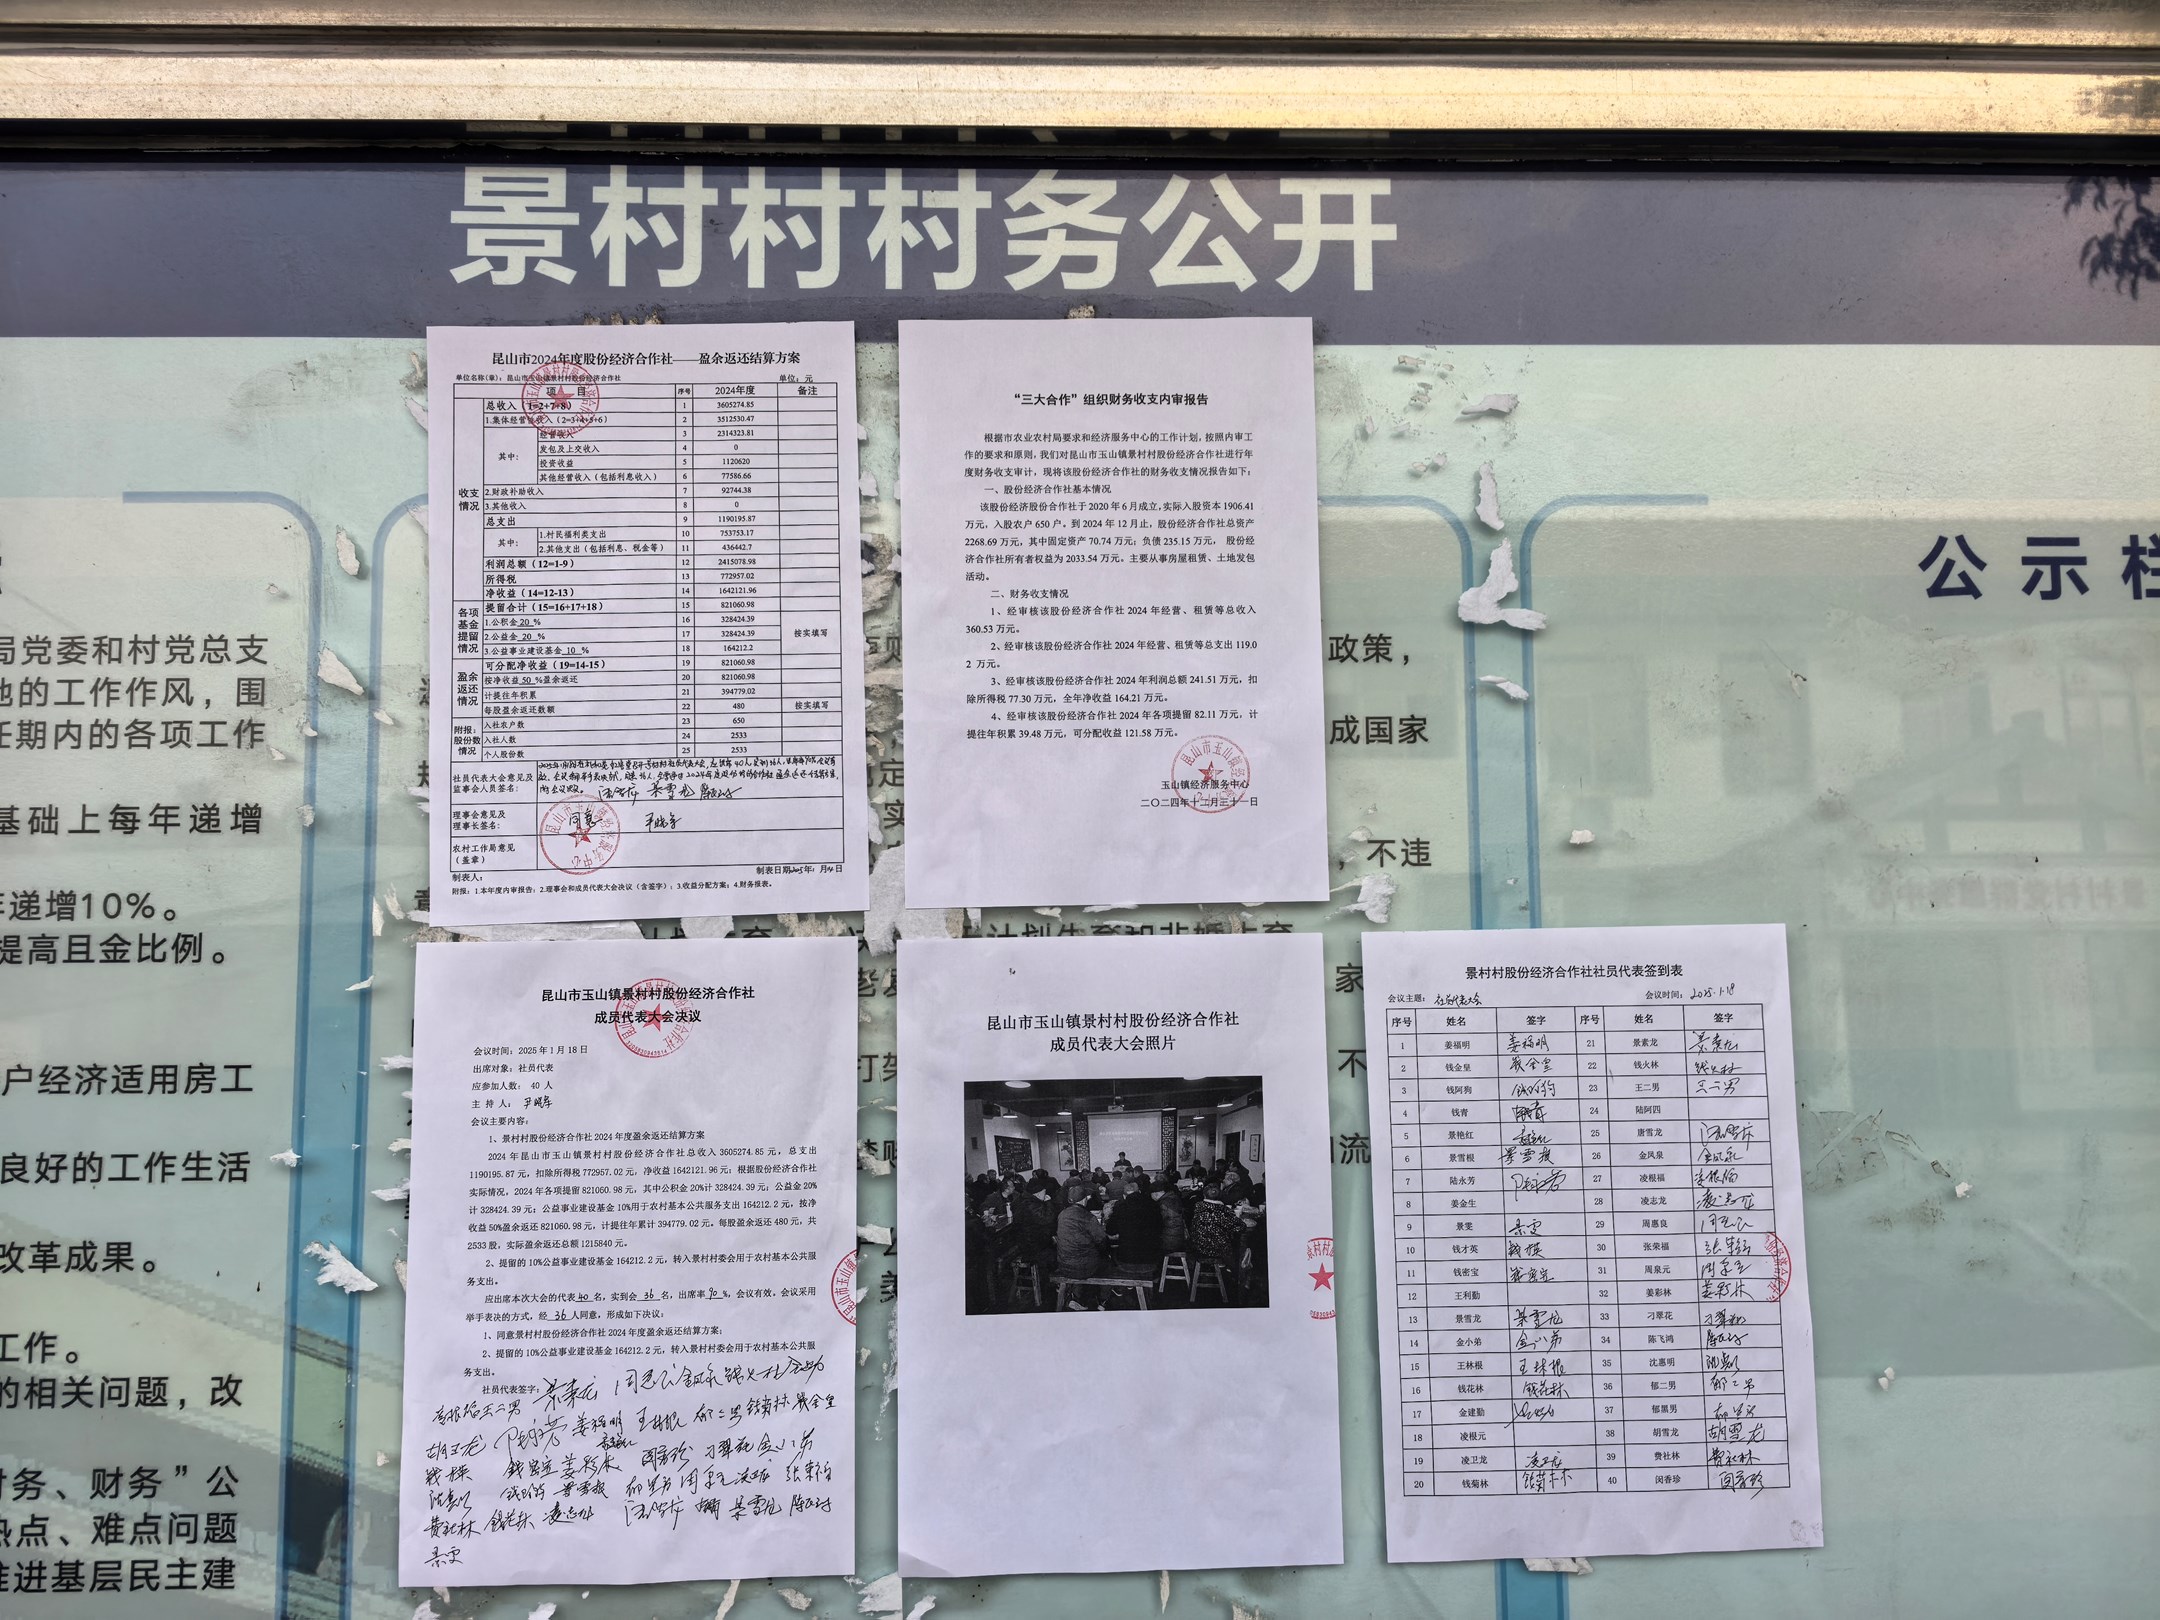 景村村村务公开
昆山市2024年度股份经济合作社——盈余返还结算方案
单位名称(章)：昆山市玉山镇景村村股份经济合作社 单位：元
项 目 序号 2024年度 备注
收支情况
总收入（1=2+7+8） 1 3605274.85
1.集体经营性收入（2=3+4+5+6） 2 3512530.47
其中：
经营收入 3 2314323.81
发包及上交收入 4 0
投资收益 5 1120620
其他经营收入（包括利息收入） 6 77586.66
2.财政补助收入 7 92744.38
3.其他收入 8 0
总支出 9 1190195.87
其中：
1.村民福利类支出 10 753753.17
2.其他支出（包括利息、税金等） 11 436442.7
利润总额（12=1-9） 12 2415078.98
所得税 13 772957.02
净收益（14=12-13） 14 1642121.96
各项基金提留情况
提留合计（15=16+17+18） 15 821060.98
1.公积金 20 % 16 328424.39
2.公益金 20 % 17 328424.39 按实填写
3.公益事业建设基金 10 % 18 164212.2
盈余返还情况
可分配净收益（19=14-15） 19 821060.98
按净收益 50 %盈余返还 20 821060.98
计提往年积累 21 394779.02
每股盈余返还数额 22 480 按实填写
附报：股份数情况
入社农户数 23 650
入社人数 24 2533
个人股份数 25 2533
社员代表大会意见及
监事会人员签名：
理事会意见及
理事长签名： 同意 尹晓军
农村工作局意见
（盖章）
制表人： 制表日期2025年1月
附报：1.本年度内审报告；2.理事会和成员代表大会决议（含签字）；3.收益分配方案；4.财务报表。
“三大合作”组织财务收支内审报告
根据市农业农村局要求和经济服务中心的工作计划，按照内审工
作的要求和原则，我们对昆山市玉山镇景村村股份经济合作社进行年
度财务收支审计，现将该股份经济合作社的财务收支情况报告如下：
一、股份经济合作社基本情况
该股份经济股份合作社于 2020 年 6 月成立，实际入股资本 1906.41
万元，入股农户 650 户。到 2024 年 12 月止，股份经济合作社总资产
2268.69 万元，其中固定资产 70.74 万元；负债 235.15 万元， 股份经
济合作社所有者权益为 2033.54 万元。主要从事房屋租赁、土地发包
活动。
二、财务收支情况
1、经审核该股份经济合作社 2024 年经营、租赁等总收入
360.53 万元。
2、经审核该股份经济合作社 2024 年经营、租赁等总支出 119.0
2 万元。
3、经审核该股份经济合作社 2024 年利润总额 241.51 万元，扣
除所得税 77.30 万元，全年净收益 164.21 万元。
4、经审核该股份经济合作社 2024 年各项提留 82.11 万元，计
提往年积累 39.48 万元，可分配收益 121.58 万元。
玉山镇经济服务中心
二〇二四年十二月三十一日
昆山市玉山镇景村村股份经济合作社
成员代表大会决议
会议时间：2025 年 1 月 18 日
出席对象：社员代表
应参加人数： 40 人
主 持 人： 尹晓军
会议主要内容：
1、景村村股份经济合作社 2024 年度盈余返还结算方案
2024 年昆山市玉山镇景村村股份经济合作社总收入 3605274.85 元，总支出
1190195.87 元，扣除所得税 772957.02 元，净收益 1642121.96 元；根据股份经济合作社
实际情况，2024 年各项提留 821060.98 元，其中公积金 20%计 328424.39 元；公益金 20%
计 328424.39 元；公益事业建设基金 10%用于农村基本公共服务支出 164212.2 元，按净
收益 50%盈余返还 821060.98 元，计提往年累计 394779.02 元。每股盈余返还 480 元，共
2533 股，实际盈余返还总额 1215840 元。
2、提留的 10%公益事业建设基金 164212.2 元，转入景村村委会用于农村基本公共服
务支出。
应出席本次大会的代表 40 名，实到会 36 名，出席率 90 %，会议有效。会议采用
举手表决的方式，经 36 人同意，形成如下决议：
1、同意景村村股份经济合作社 2024 年度盈余返还结算方案；
2、提留的 10%公益事业建设基金 164212.2 元，转入景村村委会用于农村基本公共服
务支出。
社员代表签字：
昆山市玉山镇景村村股份经济合作社
成员代表大会照片
景村村股份经济合作社社员代表签到表
会议主题： 社员代表大会 会议时间： 2025.1.18
序号 姓名 签字 序号 姓名 签字
1 姜福明 姜福明 21 景素龙 景素龙
2 钱金皇 钱金皇 22 钱火林 钱火林
3 钱阿狗 钱阿狗 23 王二男 王二男
4 钱青 钱青 24 陆阿四
5 景艳红 景艳红 25 唐雪龙
6 景雪根 景雪根 26 金凤泉 金凤泉
7 陆永芳 陆永芳 27 凌根福 凌根福
8 姜金生 28 凌志龙 凌志龙
9 景雯 景雯 29 周惠良
10 钱才英 钱才英 30 张荣福 张荣福
11 钱密宝 钱密宝 31 周泉元 周泉元
12 王利勤 32 姜彩林 姜彩林
13 景雪龙 景雪龙 33 刁翠花 刁翠花
14 金小弟 金小弟 34 陈飞鸿 陈飞鸿
15 王林根 王林根 35 沈惠明
16 钱花林 钱花林 36 郁二男 郁二男
17 金建勤 37 郁黑男 郁黑男
18 凌根元 38 胡雪龙 胡雪龙
19 凌卫龙 凌卫龙 39 费社林 费社林
20 钱菊林 钱菊林 40 闵香珍 闵香珍
公示栏
局党委和村党总支
他的工作作风，围
任期内的各项工作
基础上每年递增
年递增10%。
提高且金比例。
户经济适用房工
良好的工作生活
改革成果。
工作。
的相关问题，改
村务、财务”公
热点、难点问题
推进基层民主建
政策，
成国家
，不违
计划生育和非婚生育
家
不
流
打架